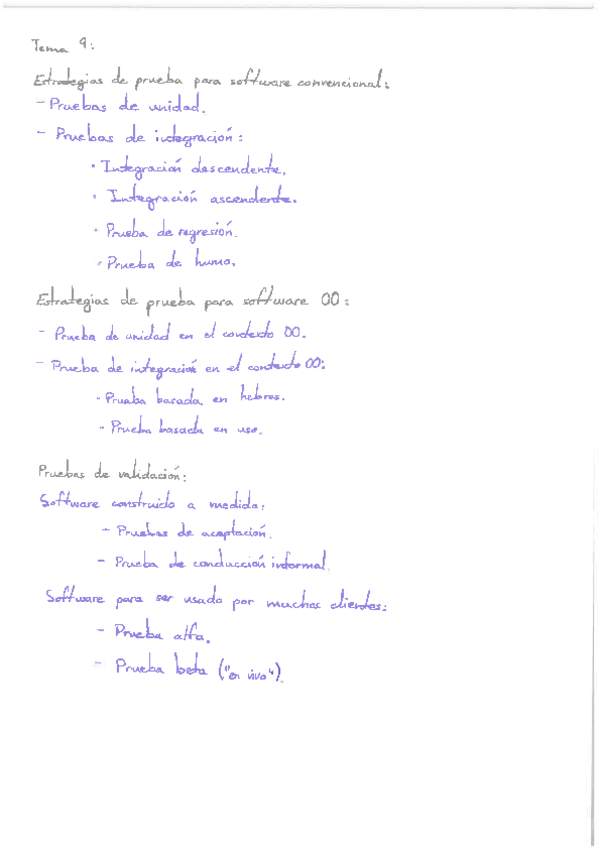 Tema 9:
Estrategias de prueba para software convencional:
- Pruebas de unidad.
- Pruebas de integración:
· Integración descendente.
· Integración ascendente.
· Prueba de regresión.
· Prueba de humo.
Estrategias de prueba para software OO:
- Prueba de unidad en el contexto OO.
- Prueba de integración en el contexto OO:
- Prueba basada en hebras.
- Prueba basada en uso.
Pruebas de validación:
Software construido a medida:
- Pruebas de aceptación.
- Prueba de conducción informal.
Software para ser usado por muchos clientes:
- Prueba alfa.
- Prueba beta ("en vivo").